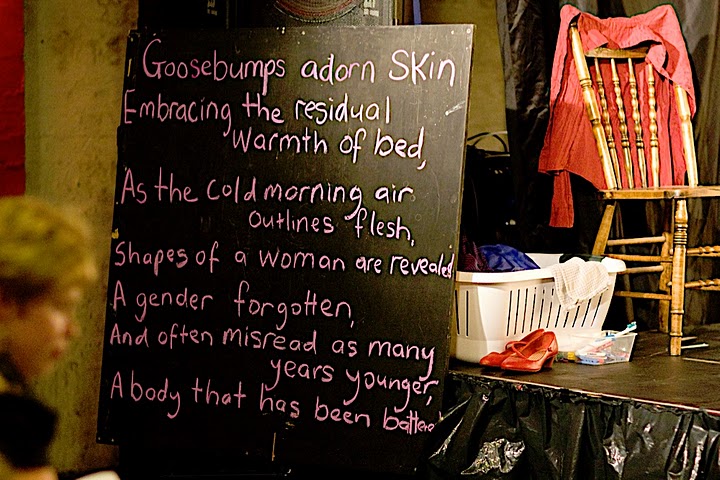 Goosebumps adorn Skin
Embracing the residual
warmth of bed,
As the cold morning air
outlines flesh,
Shapes of a woman are revealed
A gender forgotten,
And often misread as many
years younger,
A body that has been battered